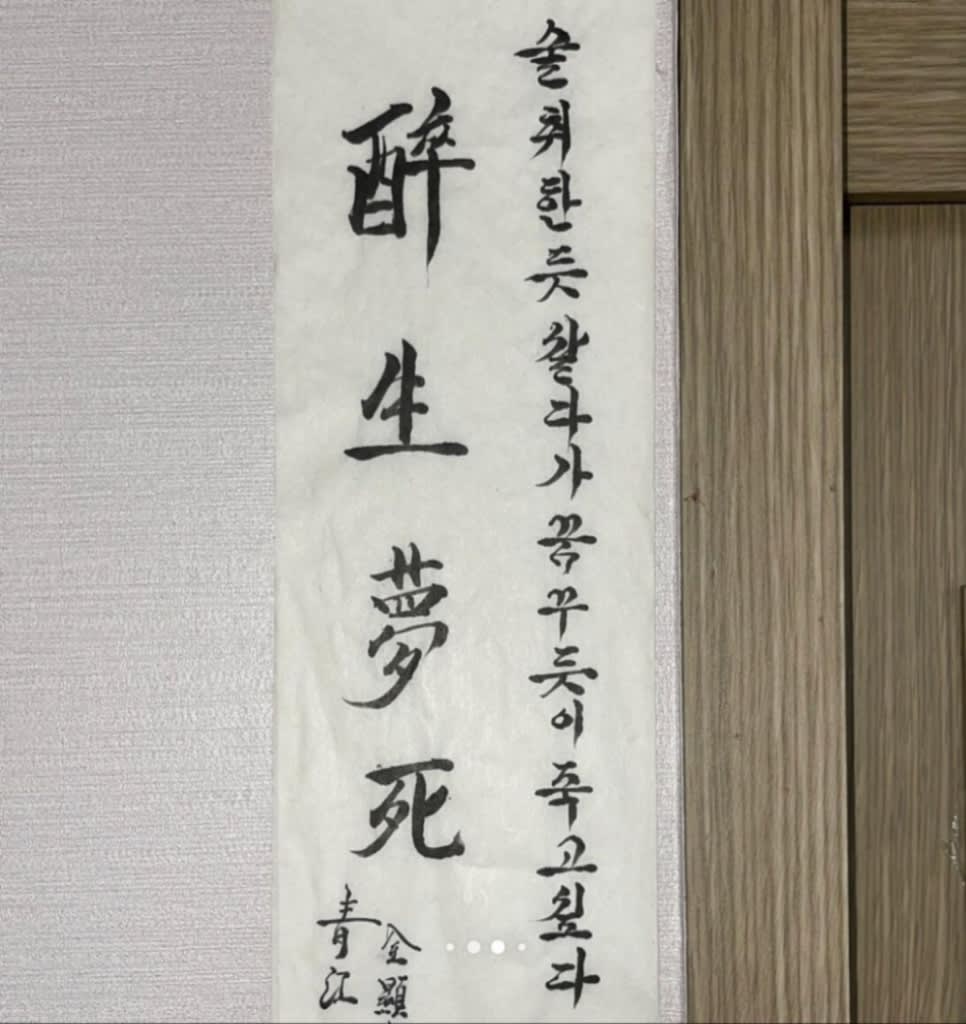 술취한듯 살다가 꿈꾸듯이 죽고싶다
醉生夢死
金顯
青江